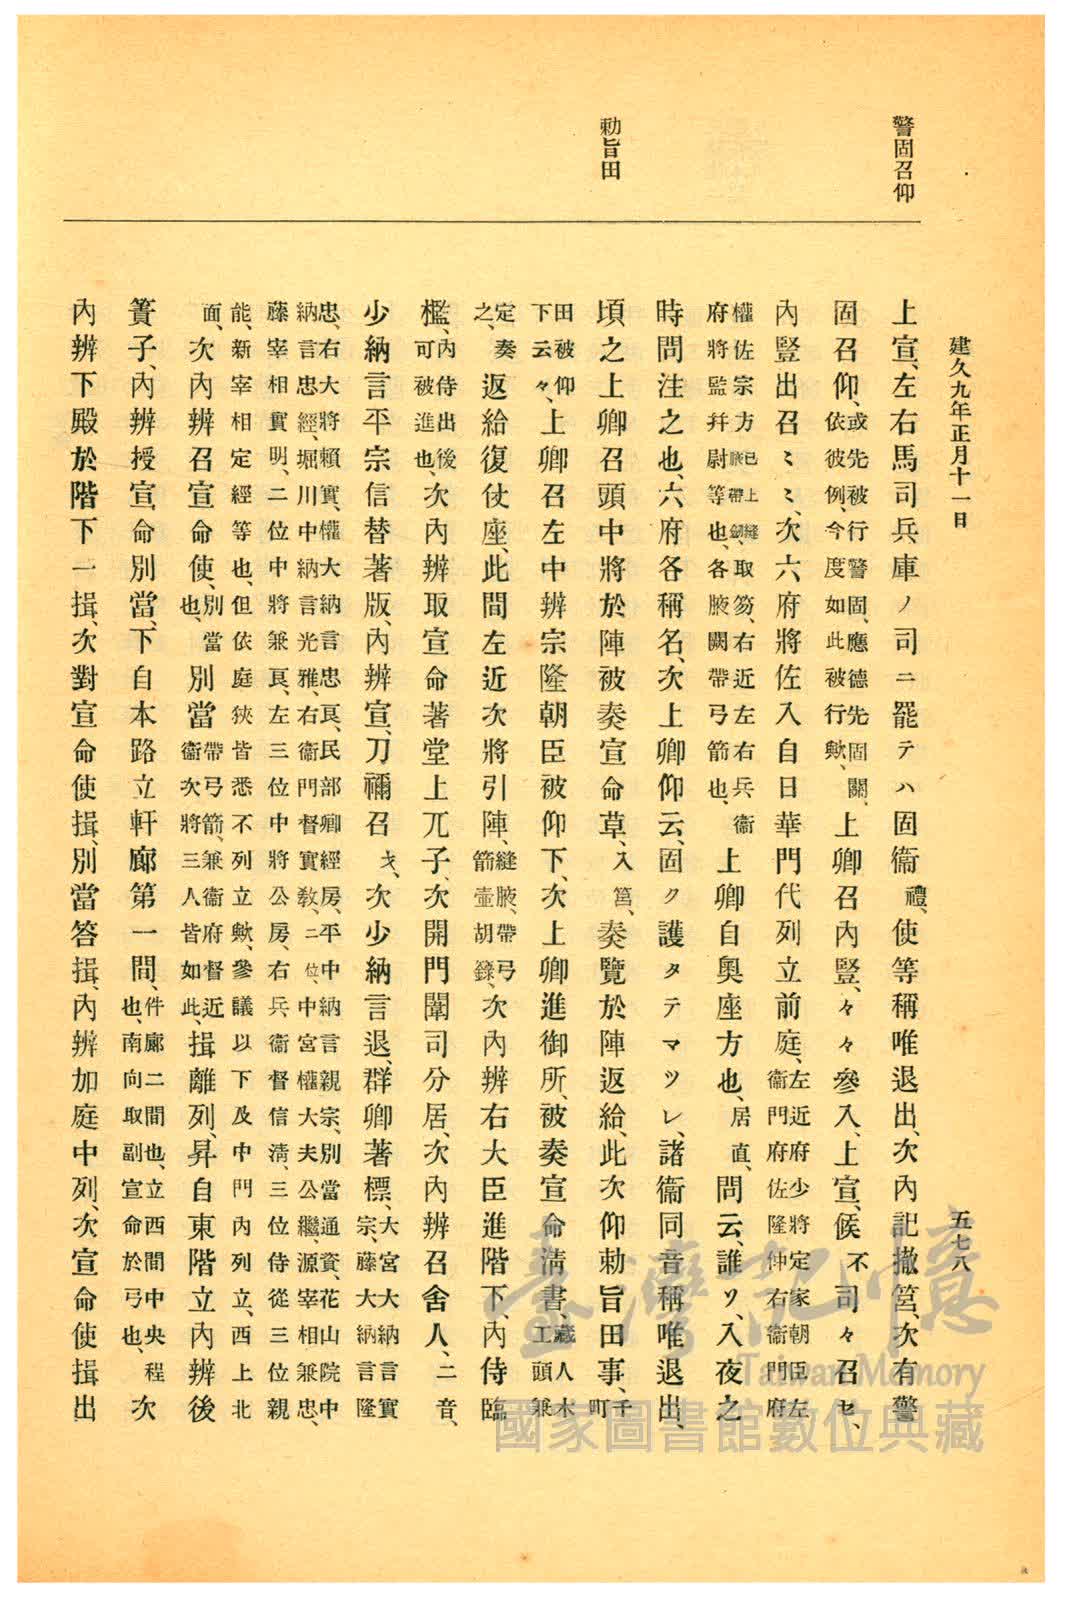 建久九年正月十一日
五七八
警固召仰
勅旨田
上宣、左右馬司兵庫ノ司ニ罷テハ固衞禮、使等稱唯退出、次內記撤筥、次有警
固召仰、或先被行警固、應德先固關、依彼例、今度如此被行歟、上卿召內豎、々々參入、上宣、候不司々召セ、
內豎出召ミミ、次六府將佐入自日華門代列立前庭、左近府少將定家朝臣、左衞門府佐隆仲、右衞門府
權佐宗方已上縫腋帶劔、取笏、右近左右兵衞府將監幷尉等也、各腋闕帶弓箭也、上卿自奧座方也、居直、問云、誰ソ、入夜之
時問注之也、六府各稱名、次上卿仰云、固ク護タテマツレ、諸衞同音稱唯退出、
頃之上卿召頭中將於陣被奏宣命草、入筥、奏覽於陣返給、此次仰勅旨田事、千町
田被仰下云々、上卿召左中辨宗隆朝臣被仰下、次上卿進御所、被奏宣命淸書、藏人木工頭兼
定奏之、返給復仗座、此間左近次將引陣、縫腋、帶弓箭壺胡籙、次內辨右大臣進階下、內侍臨
檻、內侍出後可被進也、次內辨取宣命著堂上兀子、次開門闈司分居、次內辨召舍人、二音、
少納言平宗信替著版、內辨宣、刀禰召戈、次少納言退、群卿著標、大宮大納言實宗、藤大納言隆
忠、右大將賴實、權大納言忠良、民部卿經房、平中納言親宗、別當通資、花山院中納言忠經、堀川中納言光雅、右衞門督實敎、二位、中宮權大夫公繼、源宰相兼忠、
藤宰相實明、二位中將兼良、左三位中將公房、右兵衞督信淸、三位侍從三位親能、新宰相定經等也、但依庭狹皆悉不列立歟、參議以下及中門內列立、西上北
面、次內辨召宣命使、別當也、別當帶弓箭、兼衞府督近衞次將三人皆如此、揖離列、昇自東階立內辨後
簀子、內辨授宣命別當、下自本路立軒廊第一間、件廊二間也、立西間中央程也、南向取副宣命於弓也、次
內辨下殿於階下一揖、次對宣命使揖、別當答揖、內辨加庭中列、次宣命使揖出